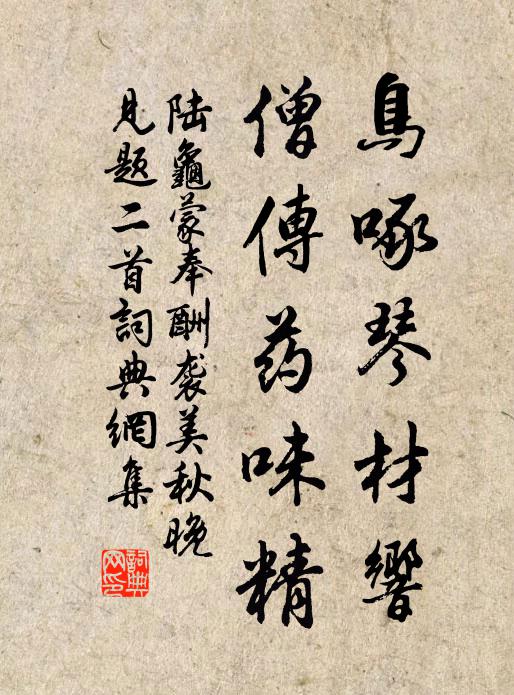 鳥啄琴材響
僧傳药味精
陆龜蒙奉酬袭美秋晚
見题二首詞典網集
詞典
网印